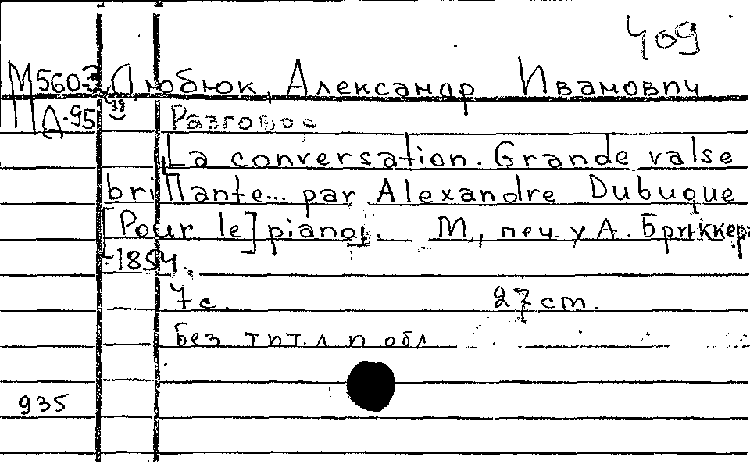 409
М 560-3 Дюбюк, Александр Иванович
Д-95 Разговор
La conversation. Grande valse
brillante... par Alexandre Dubuque
[Pour le] piano. М., печ у А. Бриккера
-1854.
7 с. 27 cm.
Без тит. л и обл
935